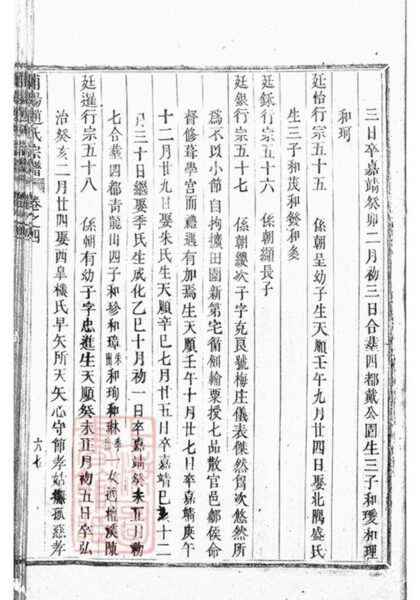 三日卒嘉靖癸卯二月初三日合葬四都戴公園生三子和璦和理
和珂
廷怡行宗五十五 係朝呈幼子生天順壬午九月廿四日娶北隅盛氏
生三子和茂和
廷銶行宗五十六 係朝顯長子
廷銀行宗五十七 係朝纓次子字克艮號梅庄儀表傑然為次悠然所
為不以小節自拘擴田園新第宅循例輸粟授七品散官邑鄒侯命
督修葺學宮而禮遇有加焉生天順壬午十月廿七日卒嘉靖庚午
十二月廿九日娶朱氏生天順辛巳七月廿五日卒嘉靖巳亥十二
月三十日繼娶季氏生成化乙巳十月初一日卒嘉靖癸未五月初
七合葬四都青龍山四子和珍和璋朱出和珣和琳季出一女適檀溪陳
廷暹行宗五十八 係朝有幼子字忠進生天順癸未正月初五日卒弘
治癸亥二月廿四娶西皐樓氏早矢所天矢心守節孝姑撫孤慈孝
浦陽趙氏宗譜 卷之四
六七